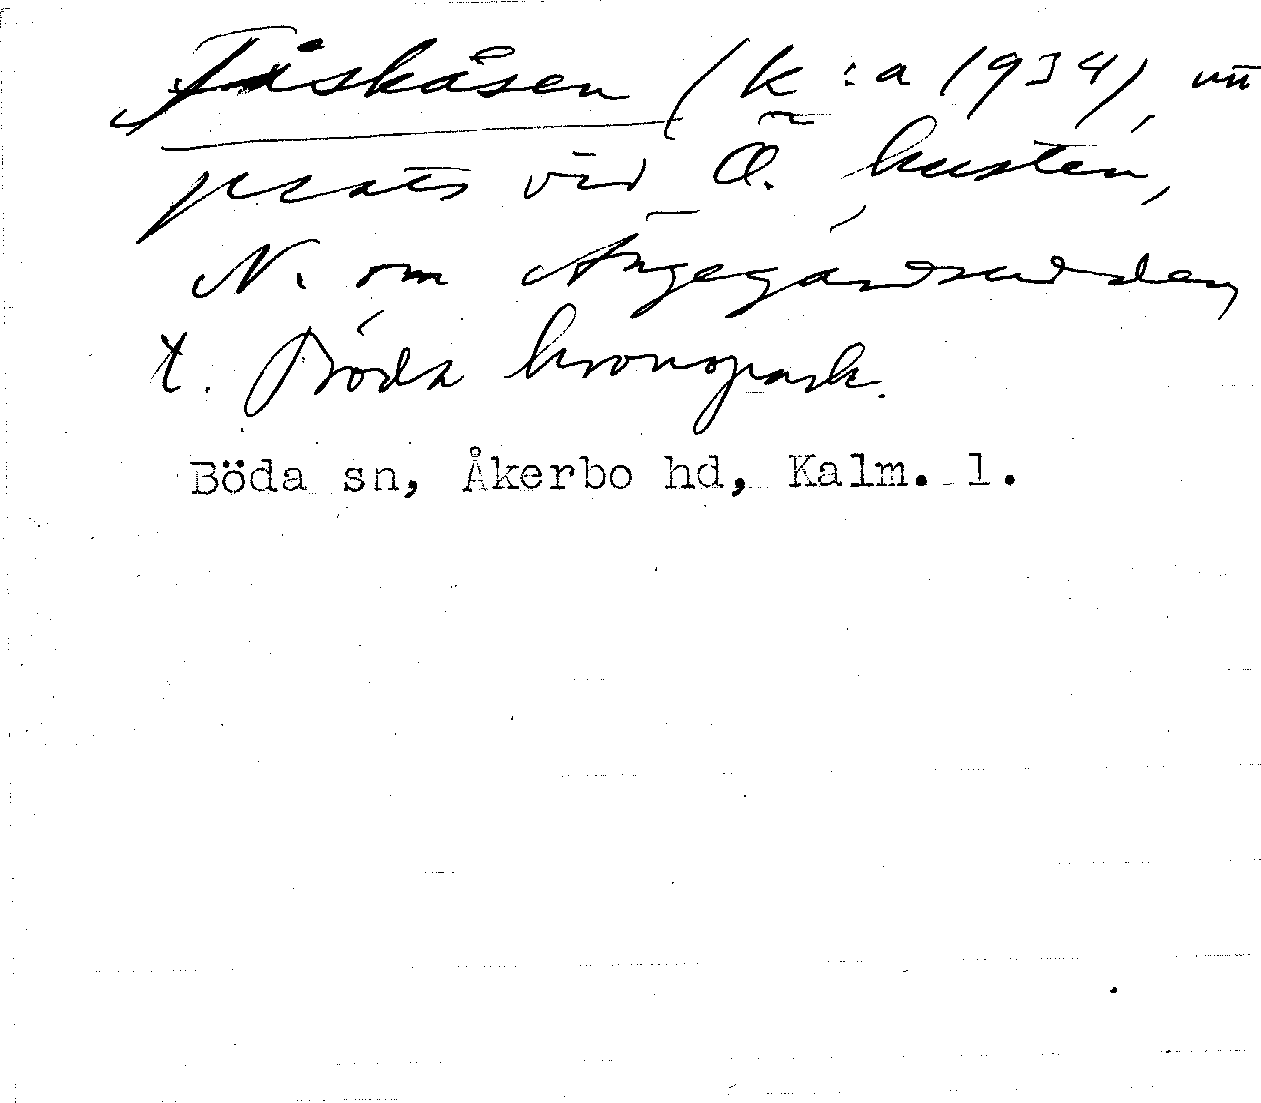 Fiskåsen (k:a 1934), un
plats vid Ö. kusten,
N. om Ängegårdsudden,
t. Böda kronopark.
Böda sn, Åkerbo hd, Kalm. l.